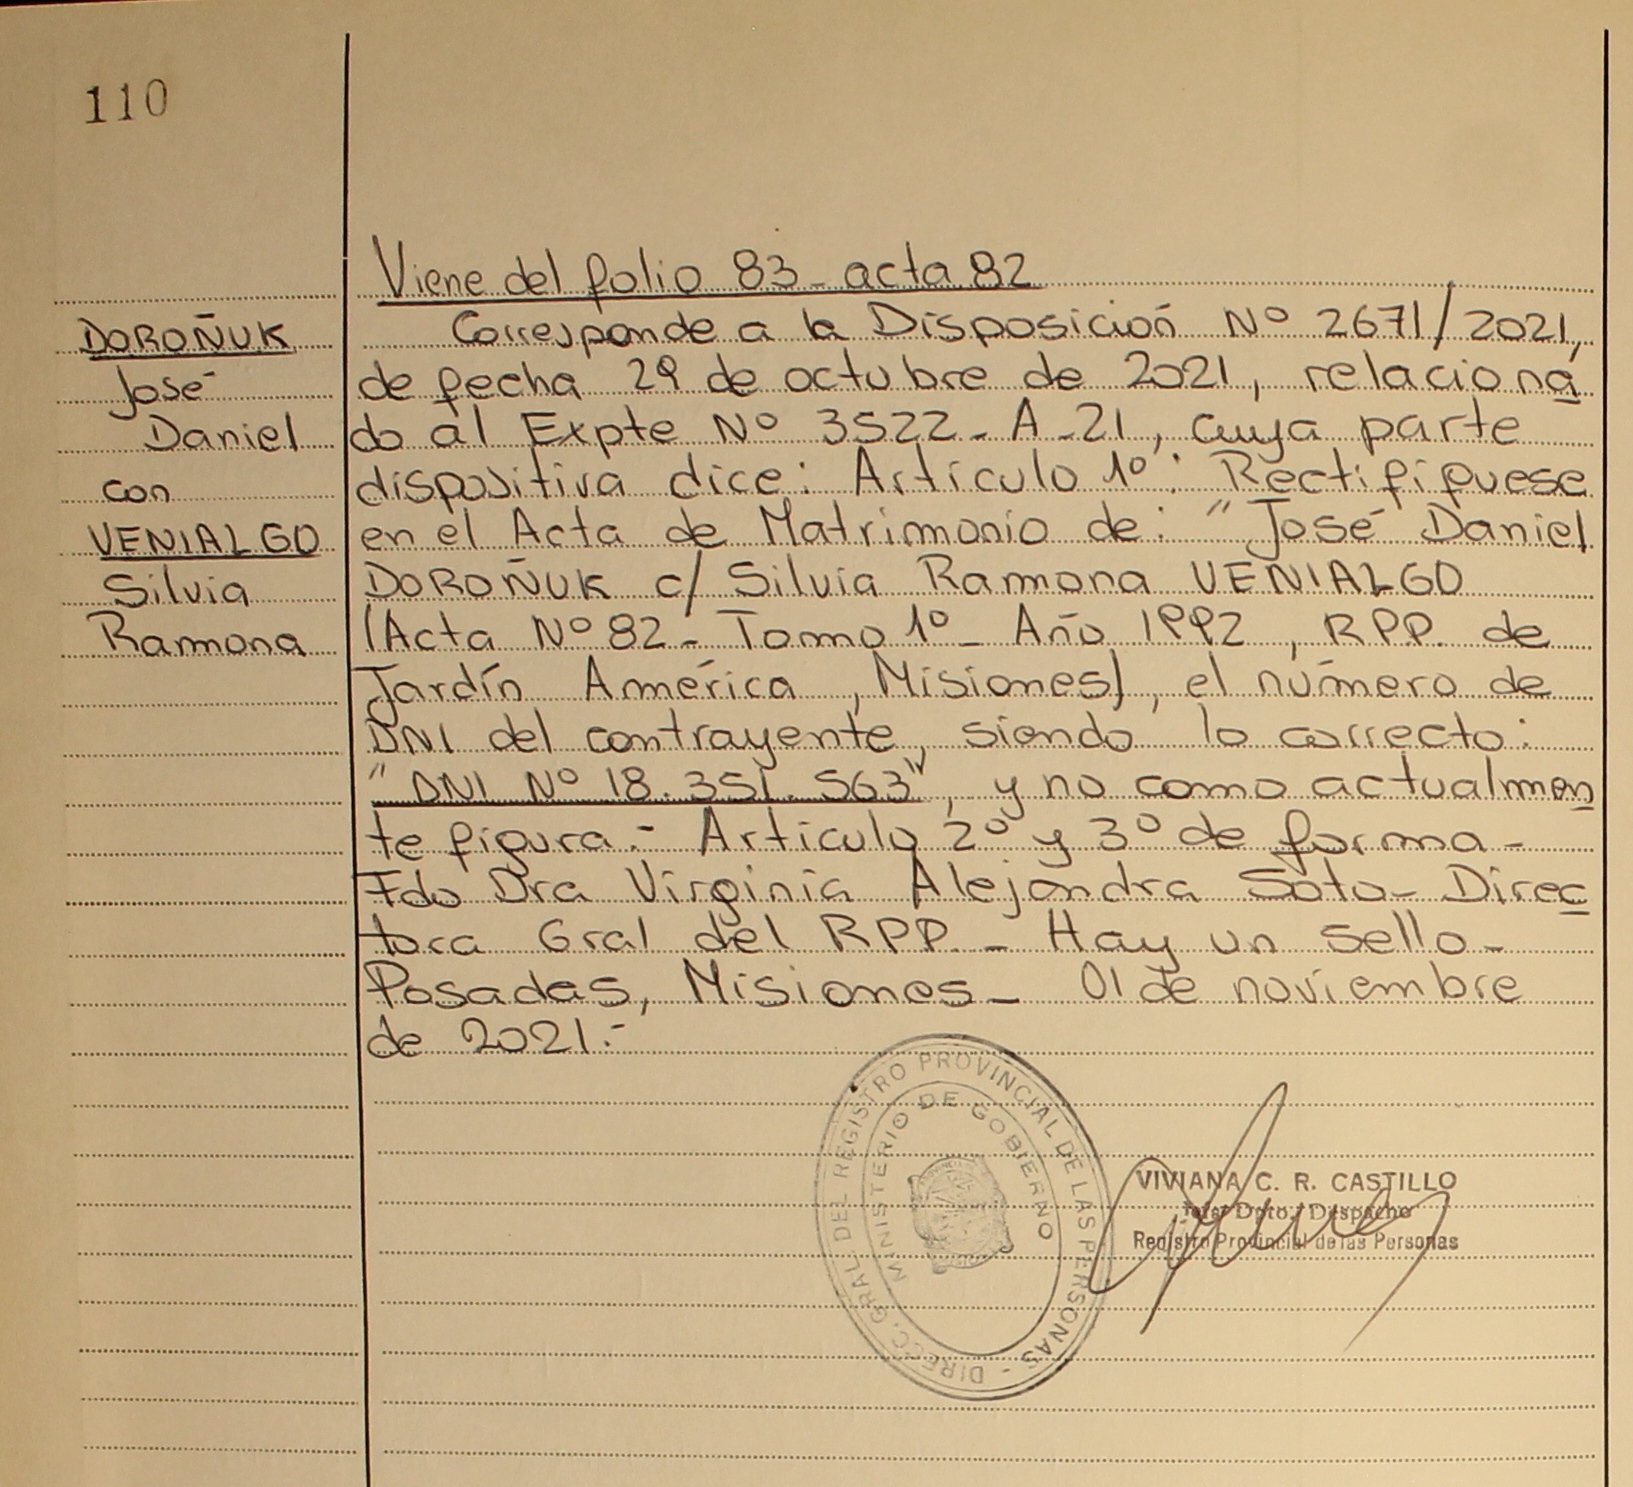 110
Viene del folio 83 - acta 82
DOROÑUK
José
Daniel
con
VENIALGO
Silvia
Ramona
Corresponde a la Disposición Nº 2671/2021,
de fecha 29 de octubre de 2021, relaciona
do al Expte Nº 3522 - A - 21, cuya parte
dispositiva dice: Artículo 1º: Rectifíquese
en el Acta de Matrimonio de: "José Daniel
DOROÑUK c/ Silvia Ramona VENIALGO
(Acta Nº 82 - Tomo 1º - Año 1992, RPP. de
Jardín América, Misiones), el número de
DNI del contrayente, siendo lo correcto:
"DNI Nº 18.351.563", y no como actualmen
te figura.- Artículo 2º y 3º de forma -
Fdo Dra Virginia Alejandra Soto - Direc
tora Gral del RPP. - Hay un sello -
Posadas, Misiones - 01 de noviembre
de 2021.-
DIRECC. GRAL. DEL REGISTRO PROVINCIAL DE LAS PERSONAS -
MINISTERIO DE GOBIERNO
VIVIANA C. R. CASTILLO
Dpto. Despacho
Registro Provincial de las Personas